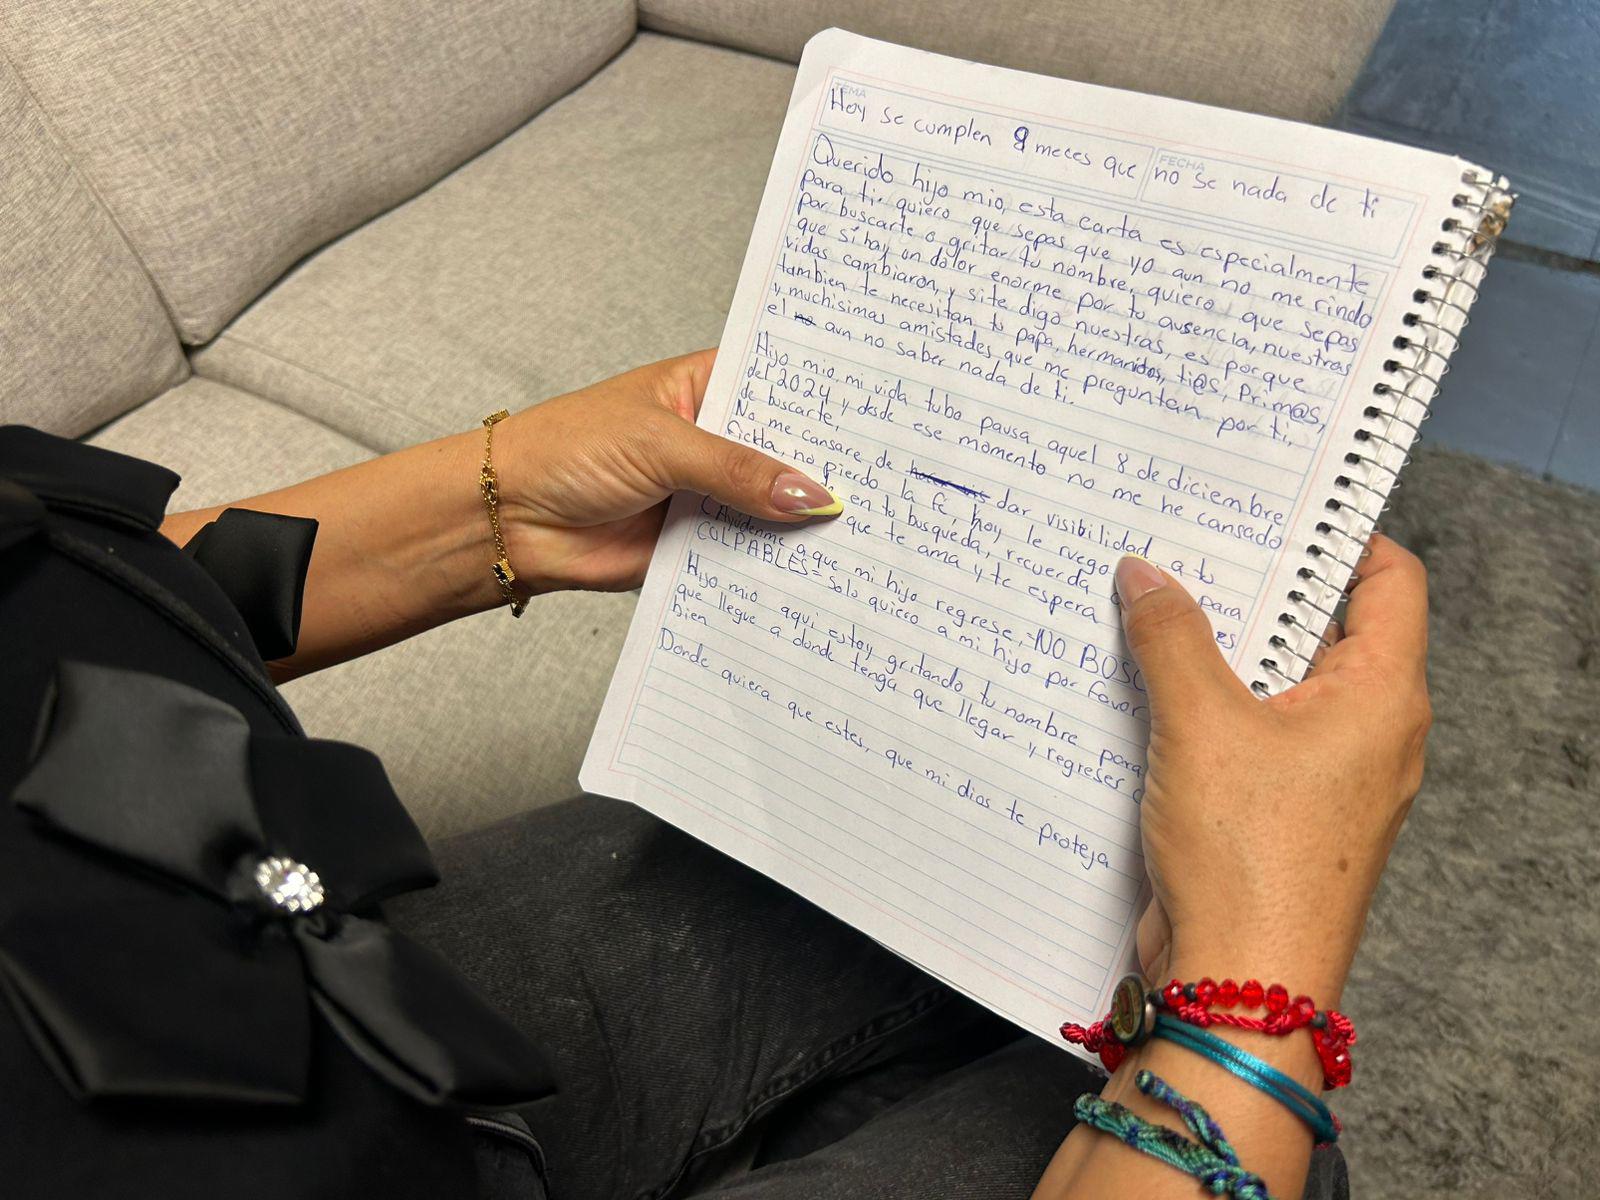 TEMA
Hoy se cumplen 9 meces que
FECHA
no se nada de ti
Querido hijo mio, esta carta es especialmente
para ti. quiero que sepas que yo aun no me rindo
por buscarte o gritar tu nombre, quiero que sepas
que sí hay un dolor enorme por tu ausencia, nuestras
vidas cambiaron, y si te digo nuestras, es porque
tambien te necesitan, tu papa, hermanidos, ti@s, Prim@s,
y muchisimas amistades que me preguntan por ti,
el no aun no saber nada de ti.
Hijo mio, mi vida tubo pausa aquel 8 de diciembre
del 2024 y desde ese momento no me he cansado
de buscarte,
No me cansare de dar visibilidad a tu
ficha, no pierdo la fé, hoy le ruego para
en tu busqueda, recuerda es
que te ama y te espera
(Ayúdenme a que mi hijo regrese, =NO BUSC
CULPABLES= solo quiero a mi hijo por favor
Hijo mio aqui estoy gritando tu nombre para
que llegue a donde tenga que llegar y regreser
bien
Donde quiera que estes, que mi dios te proteja